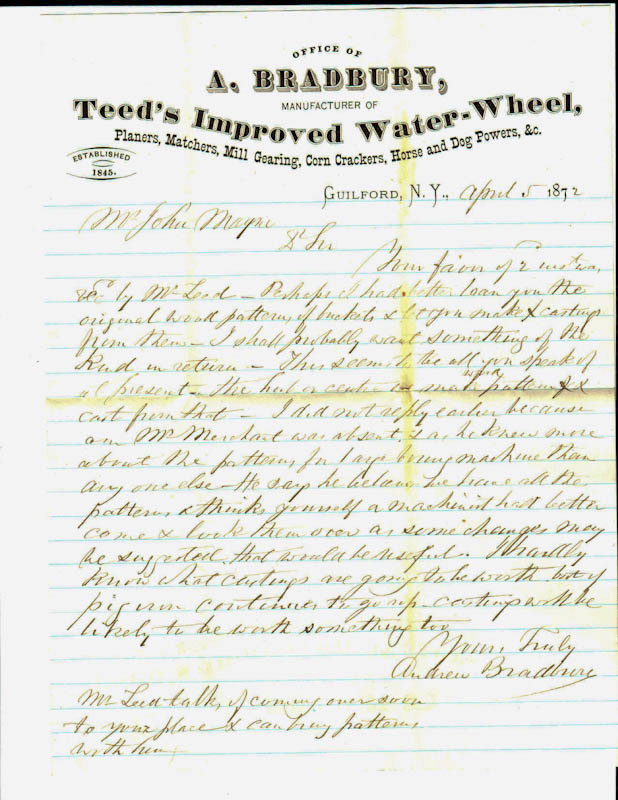 OFFICE OF
A. BRADBURY,
MANUFACTURER OF
Teed's Improved Water-Wheel,
Planers, Matchers, Mill Gearing, Corn Crackers, Horse and Dog Powers, &c.
ESTABLISHED
1845.
GUILFORD, N. Y., April 5 1872
Mr John
Dr Sir
Your favor of 2 inst was
by Mr Leed - Perhaps I had better loan you the
original wood patterns of buckets & let you make castings
from them - I shall probably want something of the
kind in return - This seems to be all you speak of
at present - the hub or center wood pattern &
cast from that - I did not reply earlier because
our Mr Merchant was absent, & as he knew more
about the patterns for large boring machine than
any one else - He says he believes we have all the
patterns & thinks yourself a machinist had better
come & look them over as some changes may
be suggested that would be useful. I hardly
know what castings are going to be worth but if
pig iron continues to go up castings will be
likely to be worth something too
Yours Truly
Andrew Bradbury
Mr Leed talks of coming over soon
to your place & can bring patterns
with him